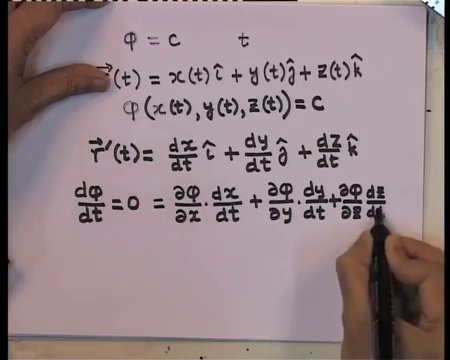 φ = c t
r⃗(t) = x(t) î + y(t) ĵ + z(t) k̂
φ(x(t), y(t), z(t)) = c
r⃗'(t) = dx/dt î + dy/dt ĵ + dz/dt k̂
dφ/dt = 0 = ∂φ/∂x · dx/dt + ∂φ/∂y · dy/dt + ∂φ/∂z dz/